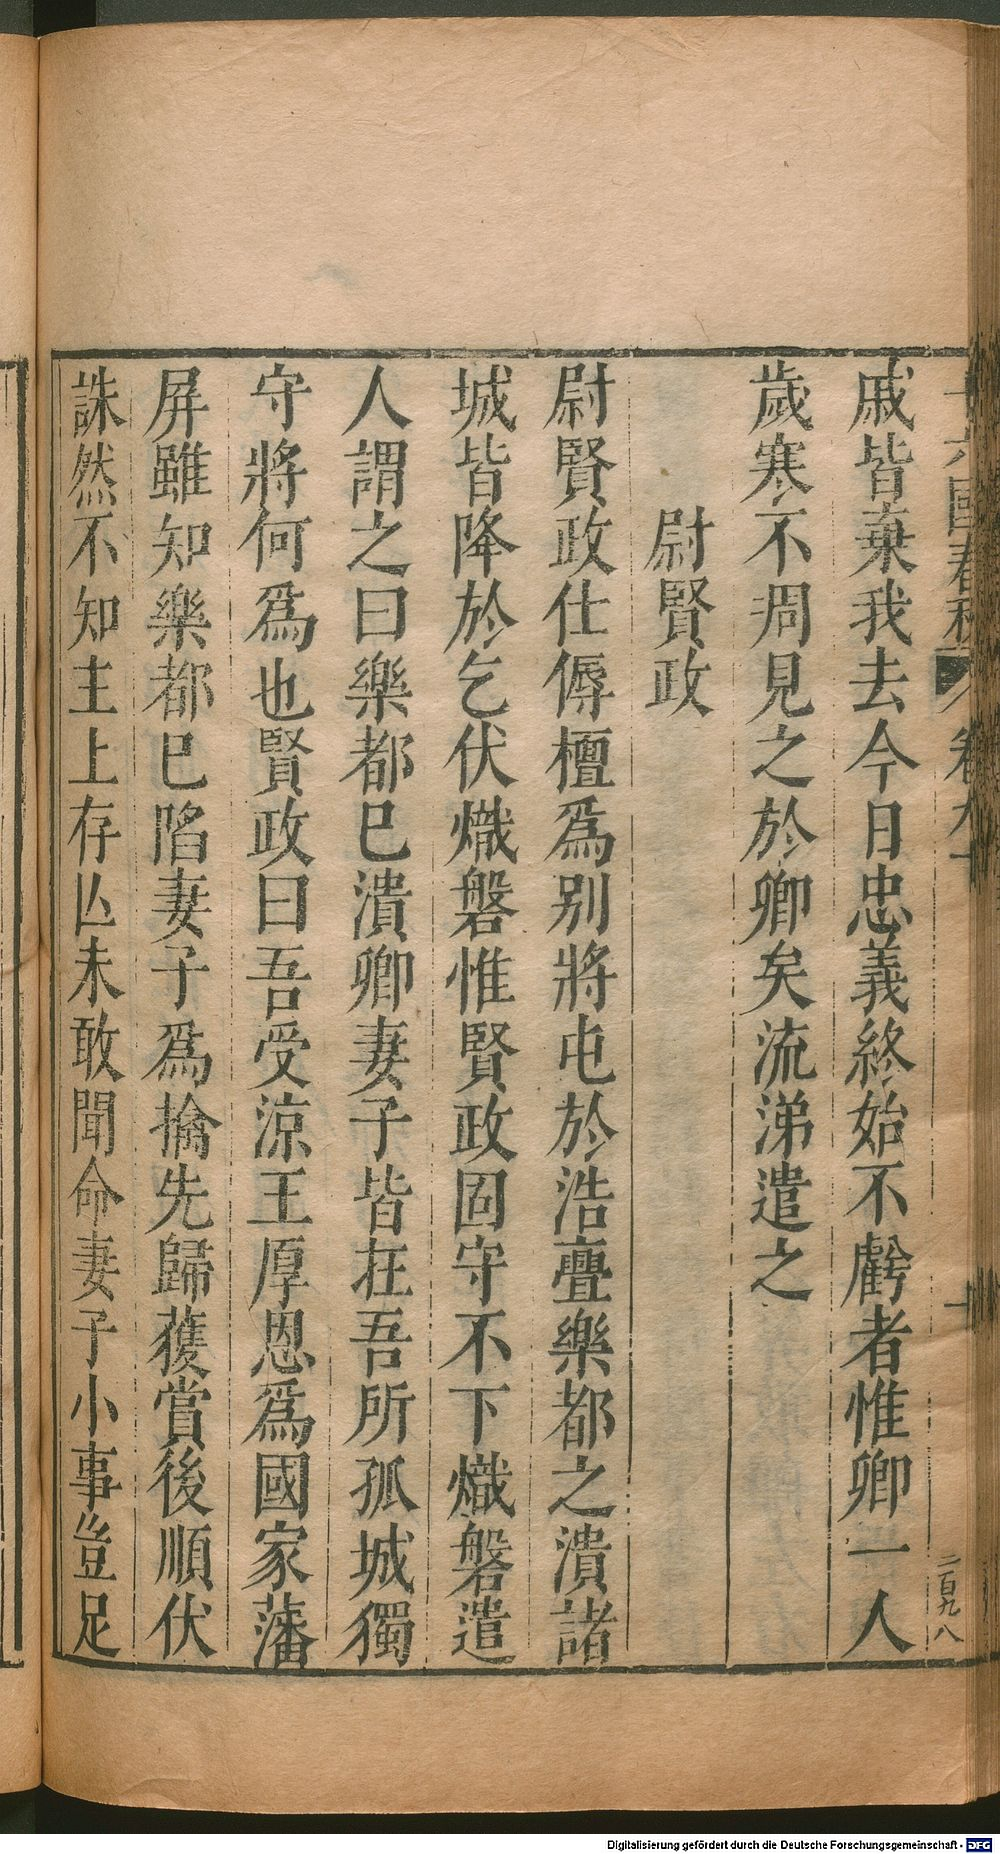 戚皆棄我去今日忠義終始不虧者惟卿一人
歲寒不凋見之於卿矣流涕遣之
尉賢政
尉賢政仕傉檀爲別將屯於浩亹樂都之潰諸
城皆降於乞伏熾磐惟賢政固守不下熾磐遣
人謂之曰樂都巳潰卿妻子皆在吾所孤城獨
守將何爲也賢政曰吾受涼王厚恩爲國家藩
屏雖知樂都巳陷妻子爲擒先歸獲賞後順伏
誅然不知主上存亾未敢聞命妻子小事豈足
十六國春秋
卷九十
十
二百九八
Digitalisierung gefördert durch die Deutsche Forschungsgemeinschaft - DFG